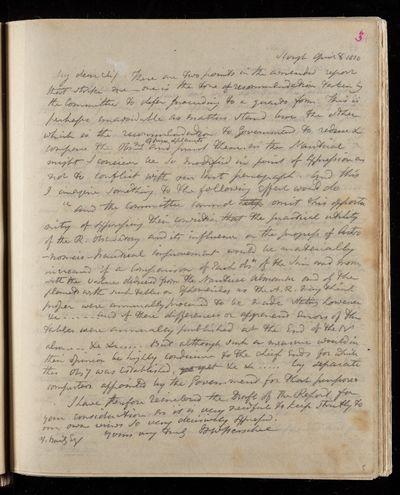 5
Slough April 8 1830
My dear Sir There are two points in the amended report
that strike me – one is the tone of recommendation taken by
the Committee to defer proceeding to a quarto form This is
perhaps unavoidable as matters stand now The other
which is the recommendation to Government to reduce &
compare the Obsns and print them in the Nautical
might I conceive be so modified in point of expression as
not to conflict with our last paragraph. And this
I imagine something to the following effect would do
"And the Committee cannot omit this opportu
nity of expressing their conviction that the practical utility
of the R. Observatory and its influence on the progress of Astro
-nomico-Nautical improvement would be materially
increased if a comparison of each Obsn of the Sun and Moon
with the values deduced from the Nautical Almanac and of the
planets with such tables or Ephemerides as the A. R. may think
proper were annually procured to be made stating however
&c ...... and if these differences or apparent errors of the
tables were annually published at the End of the N
alm ... &c &c .... But although such a measure would in
their opinion be highly conducive to the chief Ends for which
this Obsy was established, &c &c ..... by separate
computers appointed by the Government for those purposes
I have therefore reinclosed the Draft of the Report for
your consideration as it is very needful to keep strictly to
our own views so very decisively expressed.
Yours very truly J F W Herschel
F. Baily Esq